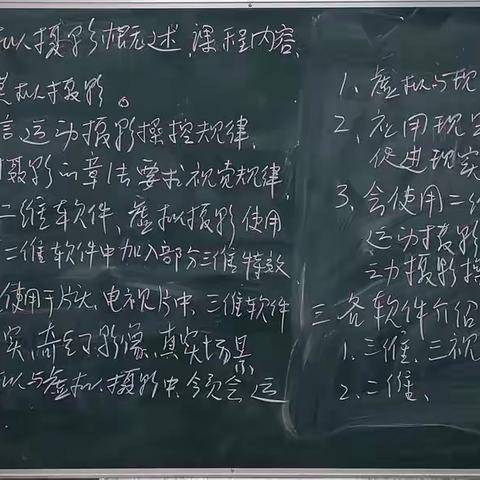 拟摄影概述、课程内容
模拟摄影。
言运动摄影操控规律、
摄影的章法要求视觉规律
二维软件、虚拟摄影使用
二维软件中加入部分三维特效
使用于片头、电视片中、三维软件
实、奇幻影像、真实场景
拟与虚拟、摄影中、今会运
1、虚拟与现
2、应用现
促进现实
3、会使用二维
运动摄影
动摄影操
三 各软件介绍
1、三维、三视
2、二维、